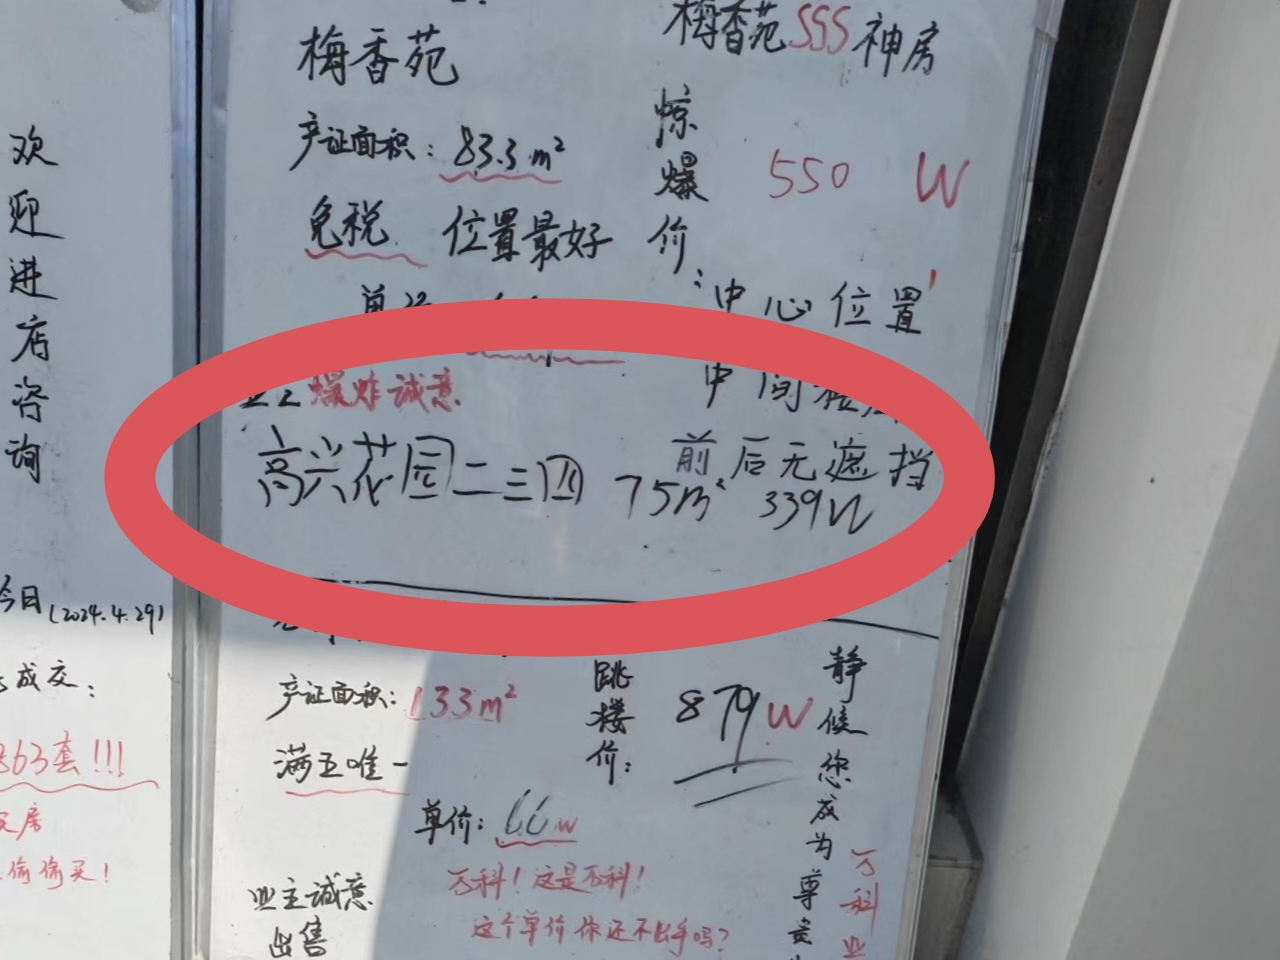 欢迎进店咨询
今日(2024.4.29)
成交:
863套!!!
买房
偷偷买!
梅香苑
产证面积: 83.3m²
免税 位置最好
爆炸诚意
梅香苑SSS神房
惊爆价: 550W
中心位置
中间
前后无遮挡
高兴花园二三四 75m² 339W
产证面积: 133m²
满五唯一
跳楼价: 879W
单价: 6.6w
万科!这是万科!
这个单价你还不出手吗?
业主诚意
出售
静候您成为尊贵
万科业